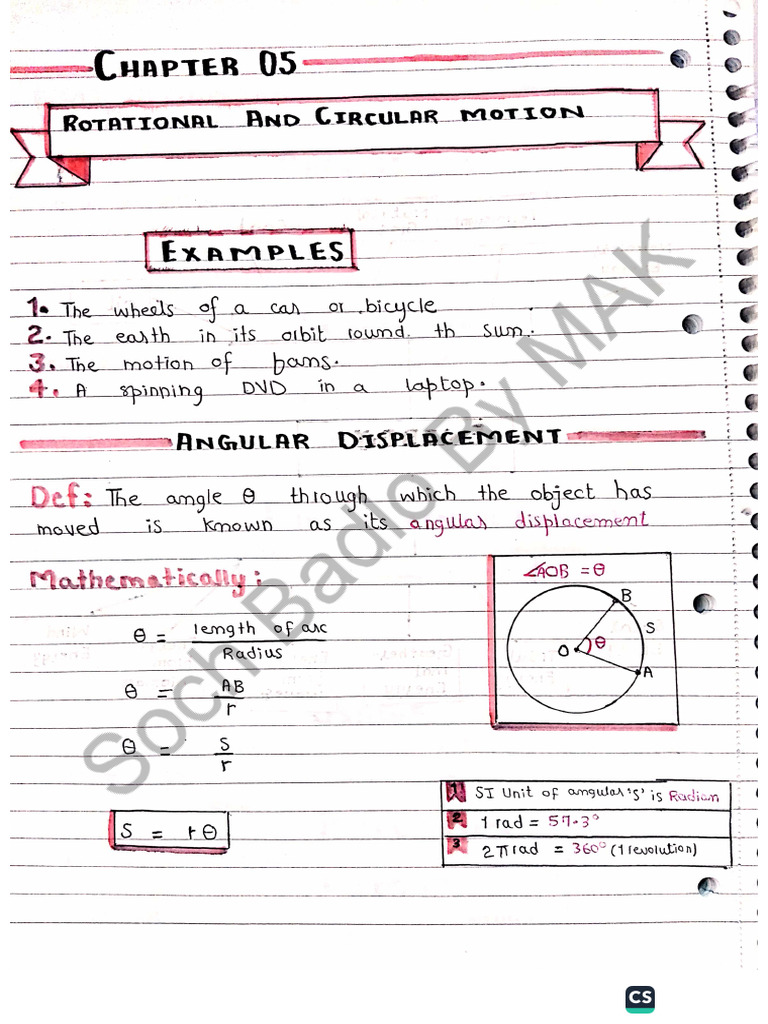 CHAPTER 05
ROTATIONAL AND CIRCULAR MOTION
EXAMPLES
1. The wheels of a car or bicycle
2. The earth in its orbit round th sun.
3. The motion of fans.
4. A spinning DVD in a laptop.
ANGULAR DISPLACEMENT
Def: The angle θ through which the object has
moved is known as its angular displacement
Mathematically:
θ = length of arc / Radius
θ = AB / r
θ = S / r
S = rθ
∠AOB = θ
B
S
O θ
A
1 SI Unit of angular 'S' is Radian
2 1 rad = 57.3°
3 2π rad = 360° (1 revolution)
Soch Badlo By MAK
CS